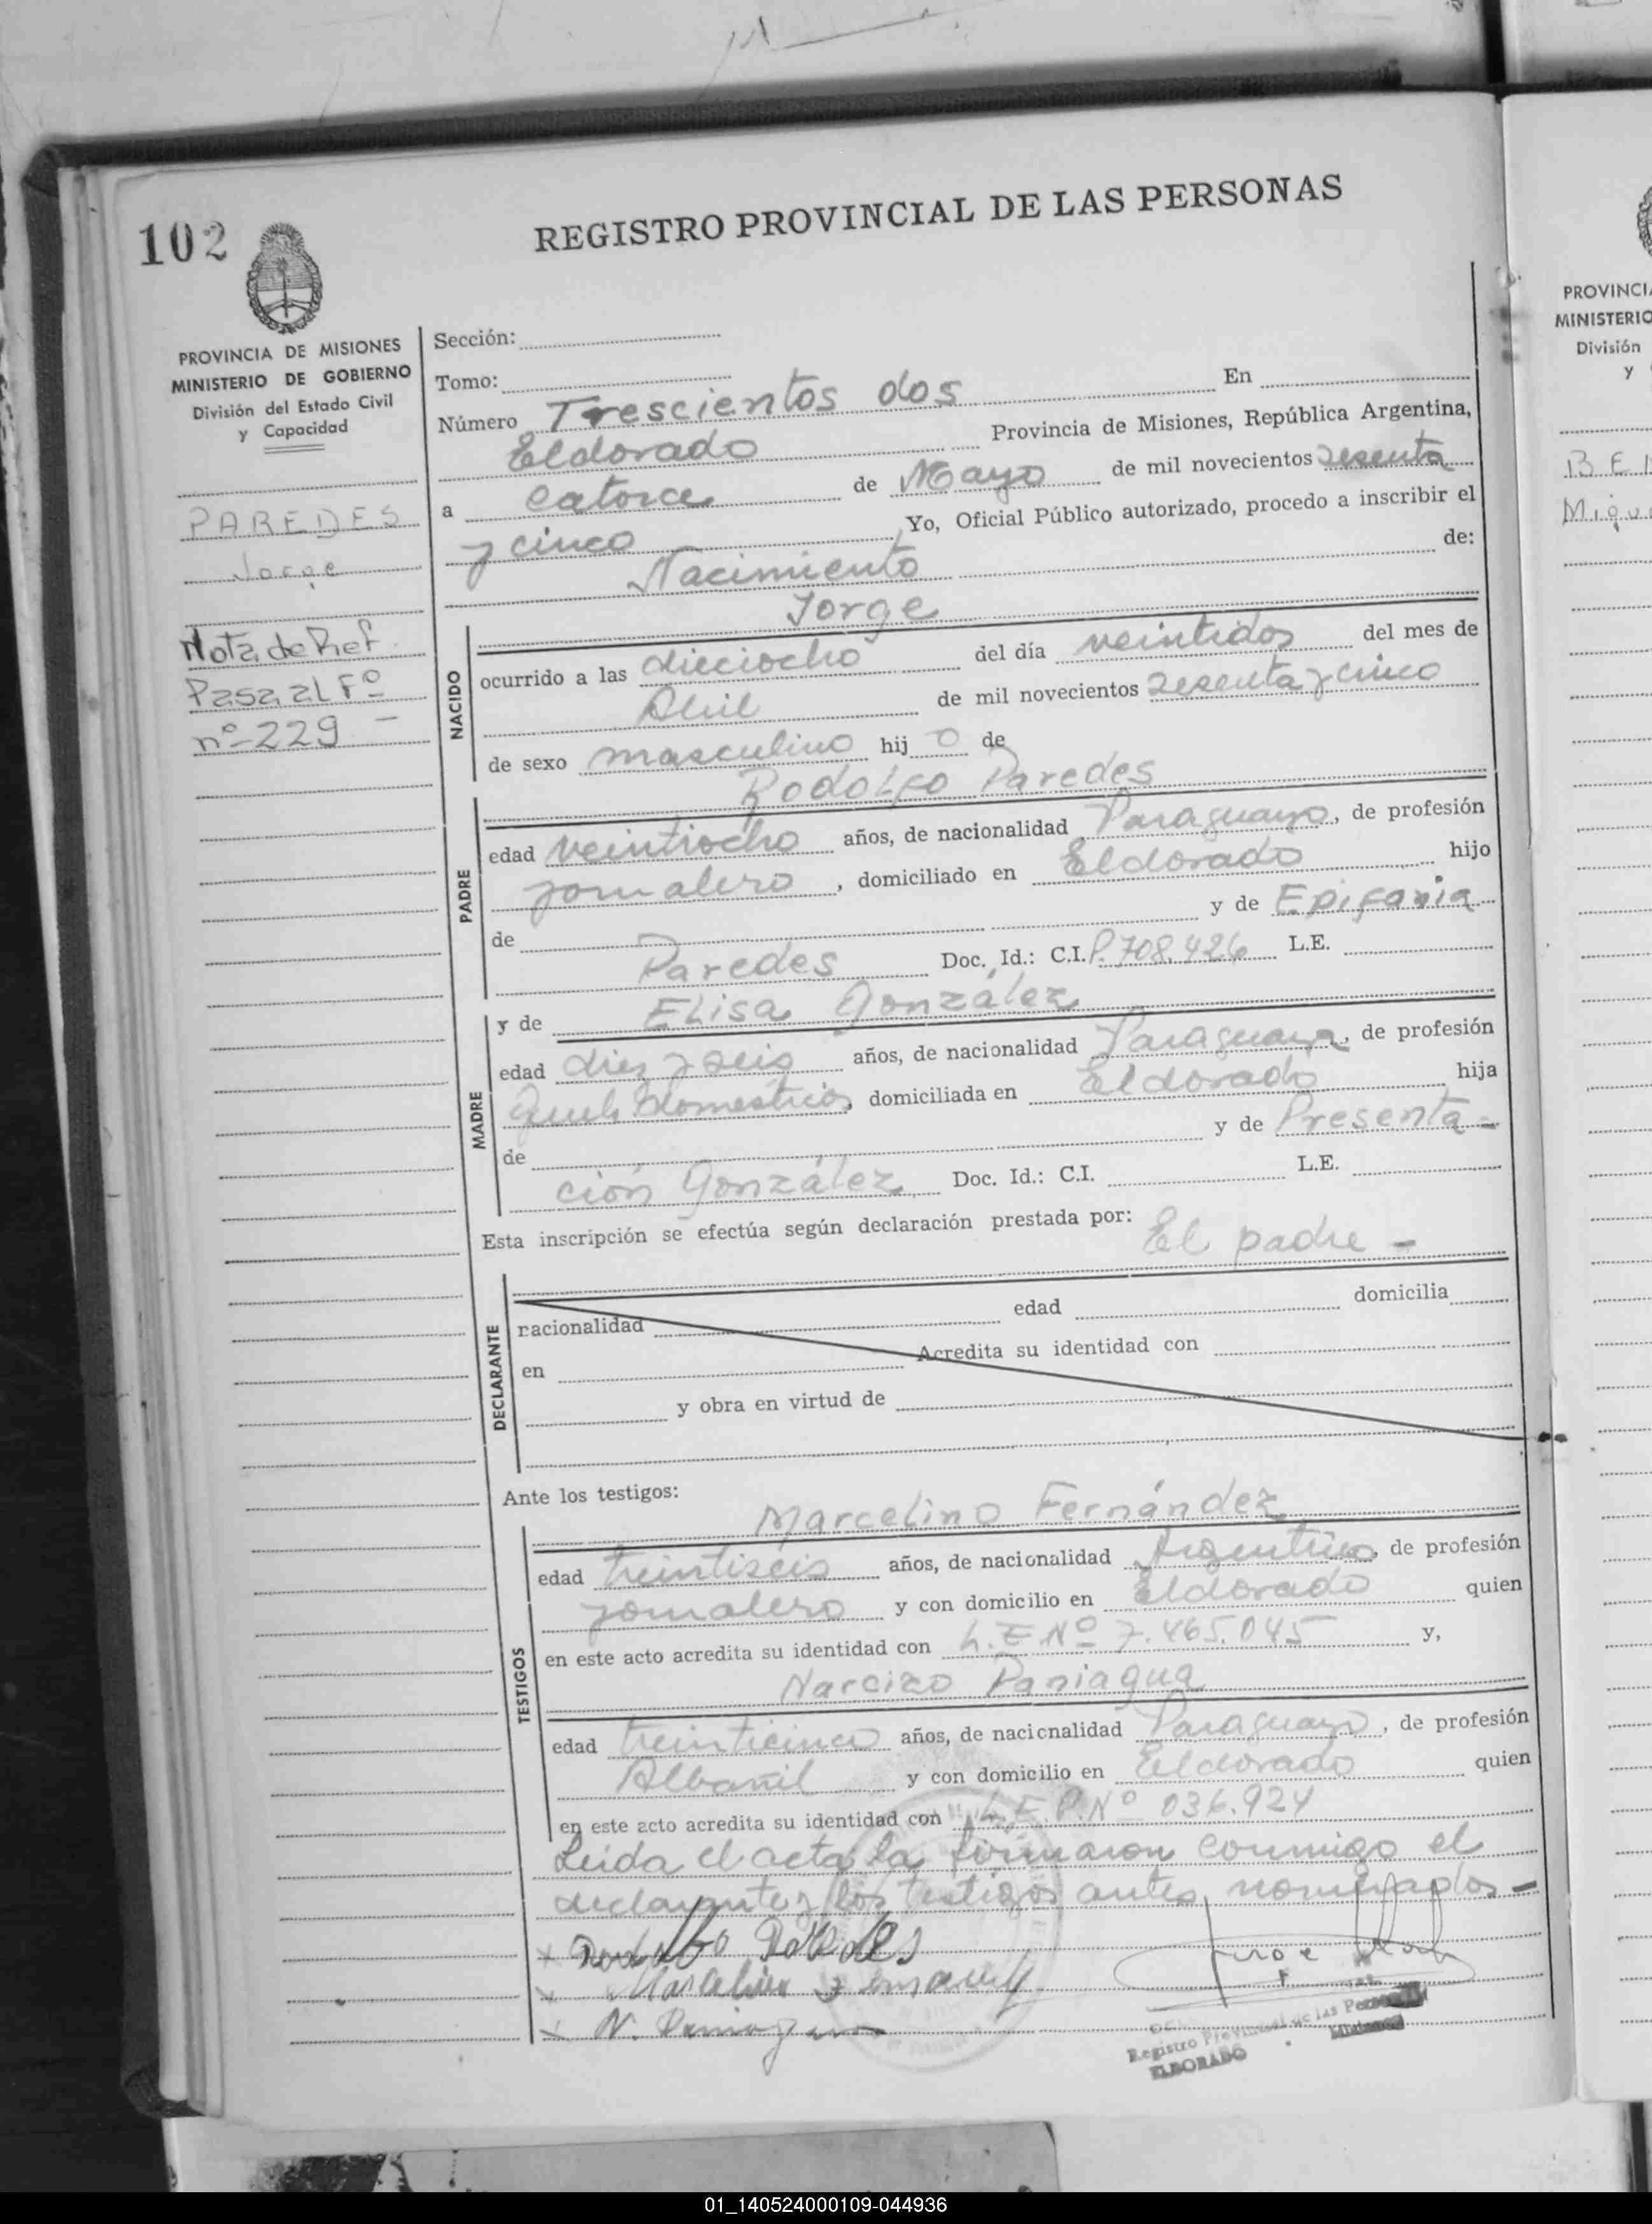 102
REGISTRO PROVINCIAL DE LAS PERSONAS
PROVINCIA DE MISIONES
MINISTERIO DE GOBIERNO
División del Estado Civil
y Capacidad
PAREDES
Jorge
Nota de Ref.
Pasa al Fº
nº 229 -
Sección:
Tomo:
Número Trescientos dos En
Eldorado Provincia de Misiones, República Argentina,
a catorce de Mayo de mil novecientos sesenta
y cinco Yo, Oficial Público autorizado, procedo a inscribir el
Nacimiento de:
Jorge
NACIDO
ocurrido a las dieciocho del día veintidos del mes de
Abril de mil novecientos sesenta y cinco
de sexo masculino hij o de
Rodolfo Paredes
PADRE
edad veintiocho años, de nacionalidad Paraguayo, de profesión
jornalero, domiciliado en Eldorado hijo
de y de Epifania
Paredes Doc. Id.: C.I. P. 708.426 L.E.
MADRE
y de Elisa González
edad diez y seis años, de nacionalidad Paraguaya, de profesión
Domésticos, domiciliada en Eldorado hija
de y de Presenta-
ción González Doc. Id.: C.I. L.E.
Esta inscripción se efectúa según declaración prestada por: El padre -
DECLARANTE
nacionalidad edad domicilia
en Acredita su identidad con
y obra en virtud de
Ante los testigos:
Marcelino Fernández
TESTIGOS
edad treintiseis años, de nacionalidad Argentino, de profesión
jornalero y con domicilio en Eldorado quien
en este acto acredita su identidad con L.E. Nº 7.465.045 y,
Narcizo Paniagua
edad treinticinco años, de nacionalidad Paraguayo, de profesión
Albañil y con domicilio en Eldorado quien
en este acto acredita su identidad con Nº 036.924
Leida el acta la firmaron conmigo el
declarante y los testigos antes nombrados -
Paredes
Marcelino
N. Paniagua
Registro Provincial de las Personas
ELDORADO Misiones
PROVINCIA
MINISTERIO
División
y
01_140524000109-044936